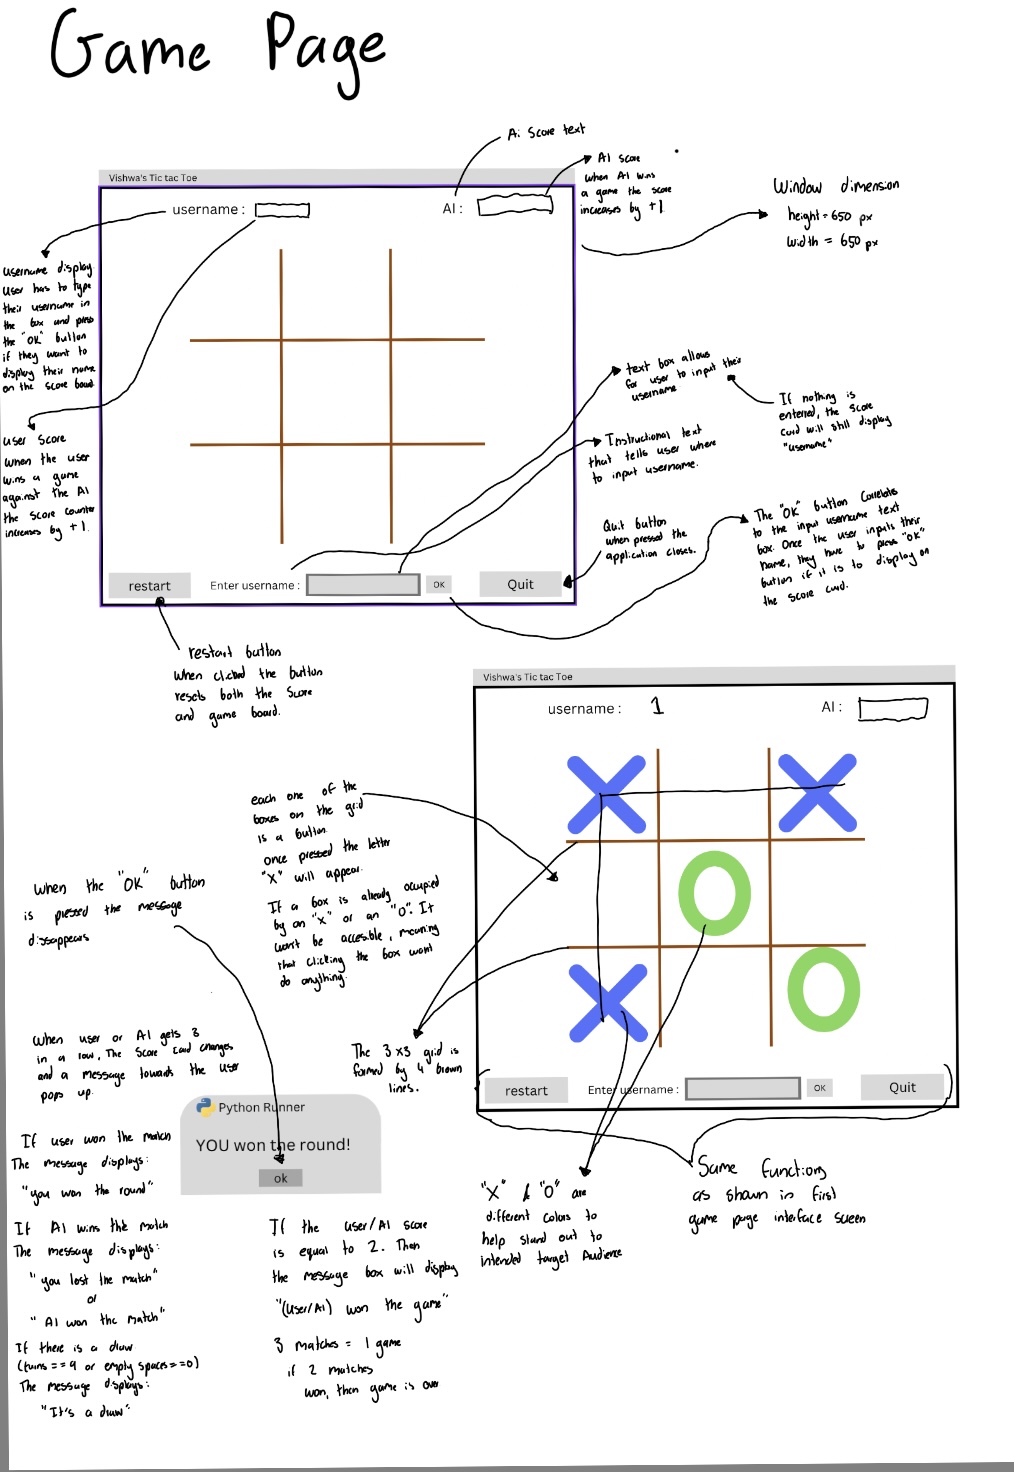 Game Page
Ai Score text
AI score
when AI wins
a game the score
increases by +1
Window dimension
height = 650 px
width = 650 px
Vishwa's Tic tac Toe
username :
AI :
username display
User has to type
their username in
the box and press
the "OK" button
if they want to
display their name
on the score board
user score
When the user
wins a game
against the AI
the score counter
increases by +1.
text box allows
for user to input their
username
If nothing is
entered, the score
card will still display
"username"
Instructional text
that tells user where
to input username.
Quit button
when pressed the
application closes.
The "OK" button correlates
to the input username text
box. Once the user inputs their
name, they have to press "OK"
button if it is to display on
the score card.
restart
Enter username :
OK
Quit
restart button
When clicked the button
resets both the score
and game board.
Vishwa's Tic tac Toe
username : 1
AI :
each one of the
boxes on the grid
is a button.
once pressed the letter
"X" will appear.
If a box is already occupied
by an "X" or an "O". It
won't be accesible, meaning
that clicking the box wont
do anything.
When the "OK" button
is pressed the message
dissappears
The 3x3 grid is
formed by 4 brown
lines.
When user or AI gets 3
in a row, The Score card changes
and a message towards the user
pops up.
restart
Enter username :
OK
Quit
Python Runner
YOU won the round!
ok
If user won the match
The message displays:
"you won the round"
If AI wins the match
The message displays:
"you lost the match"
or
"AI won the match"
If there is a draw
(turns == 9 or empty spaces == 0)
The message displays:
"It's a draw"
If the user/AI score
is equal to 2. Then
the message box will display
"(User/AI) won the game"
3 matches = 1 game
if 2 matches
won, then game is over
"X" & "O" are
different colors to
help stand out to
intended target Audience
Same functions
as shown in first
game page interface screen